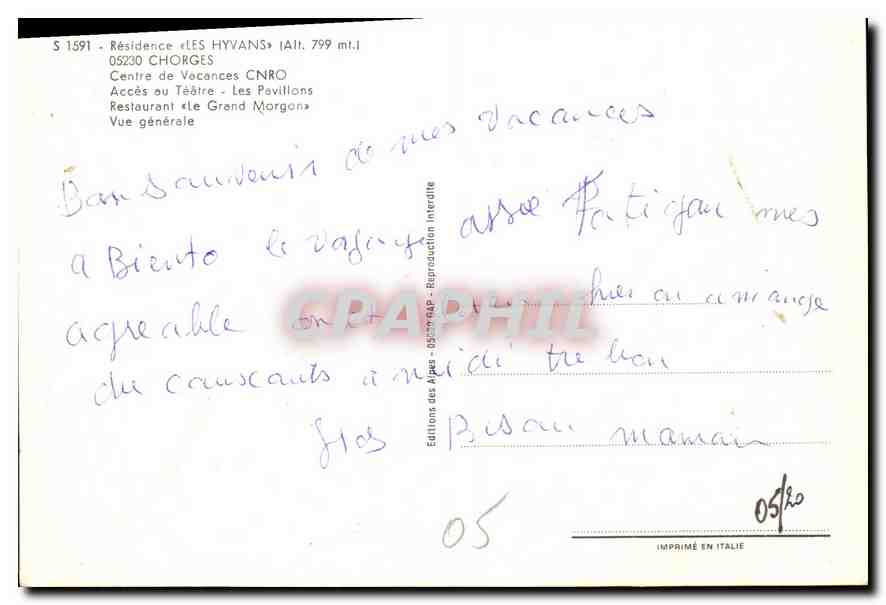 S 1591 - Résidence «LES HYVANS» (Alt. 799 mt.)
05230 CHORGES
Centre de Vacances CNRO
Accès au Téâtre - Les Pavillons
Restaurant «Le Grand Morgon»
Vue générale
Bon Souvenir de mes vacances
a Biento le voyage assé Fatigan mes
agreable on et hier on a mange
du couscouts a midi tre bon
gros Bisou maman
Editions des Alpes - 05000 GAP - Reproduction Interdite
CPAPHIL
05
05/20
IMPRIMÉ EN ITALIE